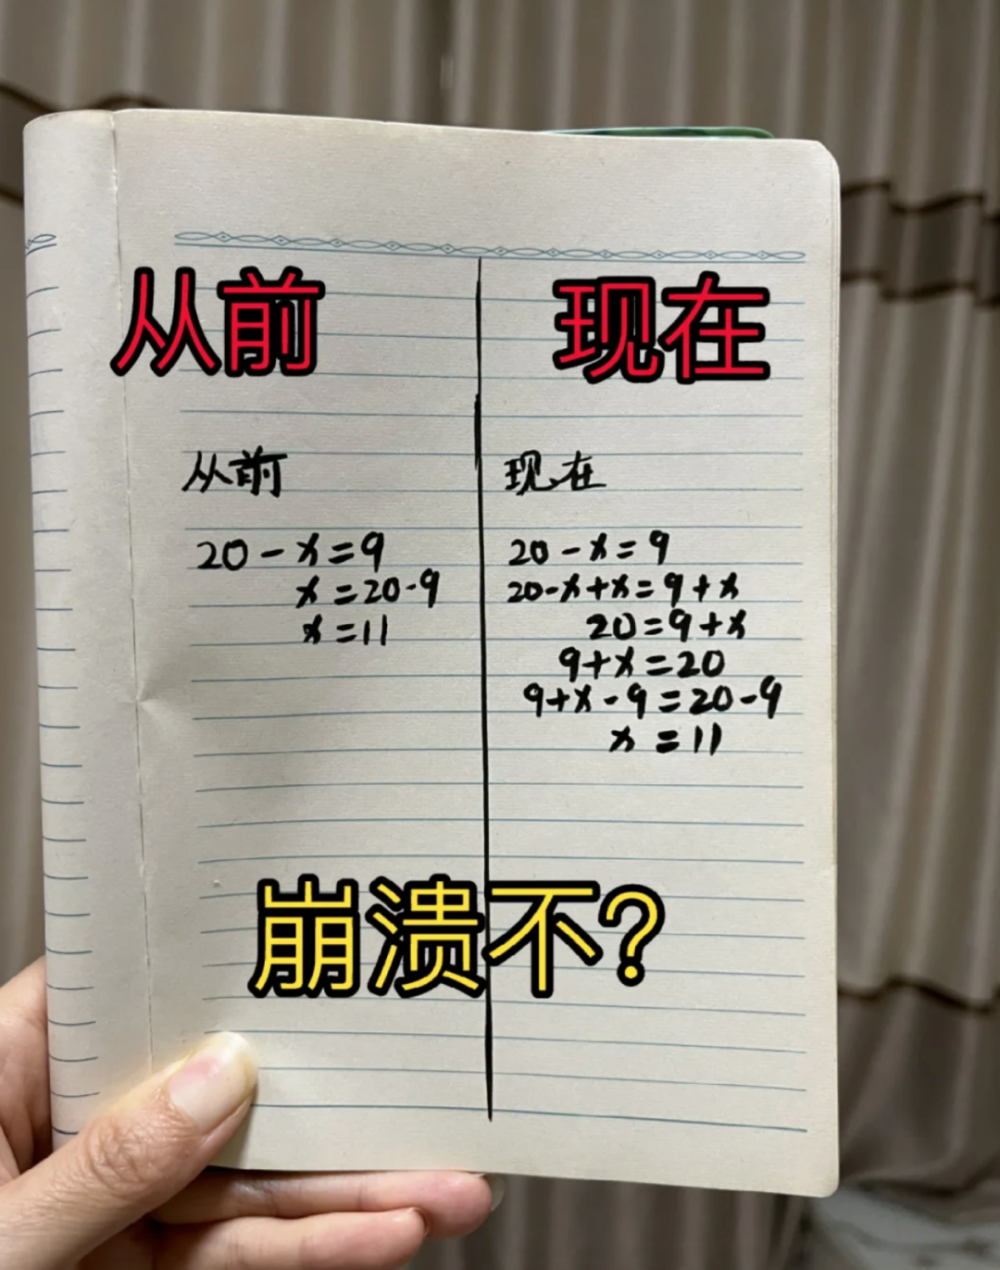 从前
现在
从前
20-x=9
x=20-9
x=11
现在
20-x=9
20-x+x=9+x
20=9+x
9+x=20
9+x-9=20-9
x=11
崩溃不?